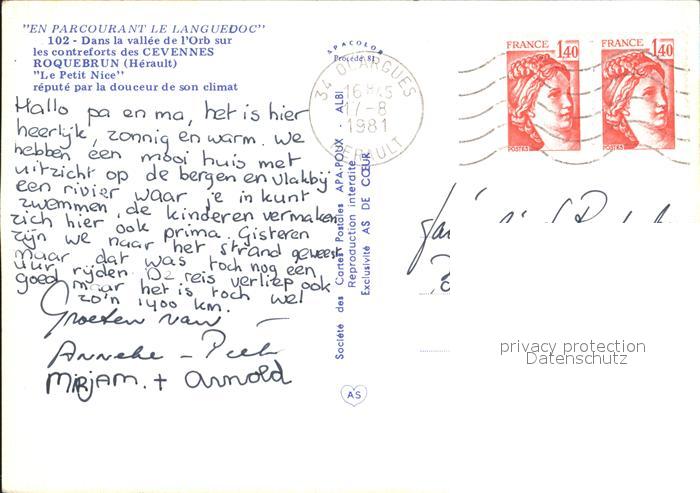 "EN PARCOURANT LE LANGUEDOC"
102 - Dans la vallée de l'Orb sur
les contreforts des CEVENNES
ROQUEBRUN (Hérault)
"Le Petit Nice"
réputé par la douceur de son climat
Hallo pa en ma, het is hier
heerlijk, zonnig en warm. We
hebben een mooi huis met
uitzicht op de bergen en vlakbij
een rivier waar je in kunt
zwemmen, de kinderen vermaken
zich hier ook prima. Gisteren
zijn we naar het strand geweest
maar dat was toch nog een
uur rijden. De reis verliep ook
goed maar het is toch wel
zo'n 1400 km.
Groeten van
Anneke - Piet
Mirjam. + Arnold
APACOLOR
Procédé 81
Société des Cartes Postales APA-POUX - ALBI
Reproduction interdite
Exclusivité AS DE CŒUR
AS
34 OLARGUES
16H45
17-8
1981
HERAULT
FRANCE 1,40
POSTES
FRANCE 1,40
POSTES
privacy protection
Datenschutz